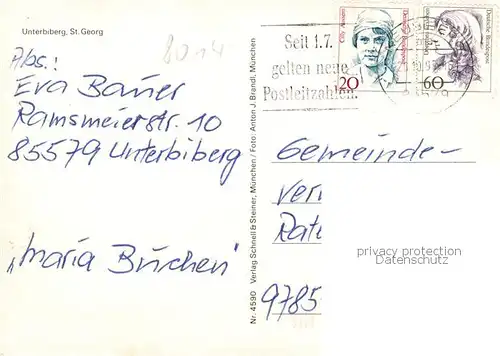 Unterbiberg, St. Georg
8014
Abs.:
Eva Bauer
Ramsmeierstr. 10
85579 Unterbiberg
"Maria Burchen"
Nr. 4590 Verlag Schnell & Steiner, München / Foto: Anton J. Brandl, München
Seit 1.7.
gelten neue
Postleitzahlen.
Cilly Aussem
Deutsche Bundespost
20
Deutsche Bundespost
60
Gemeinde-
9785
privacy protection
Datenschutz